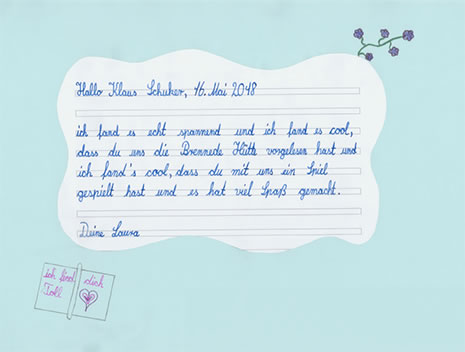 Hallo Klaus Schuker, 16. Mai 2018
ich fand es echt spannend und ich fand es cool,
dass du uns die Brennede Hütte vorgelesen hast und
ich fand's cool, dass du mit uns ein Spiel
gespielt hast und es hat viel Spaß gemacht.
Deine Laura
ich find dich
Toll